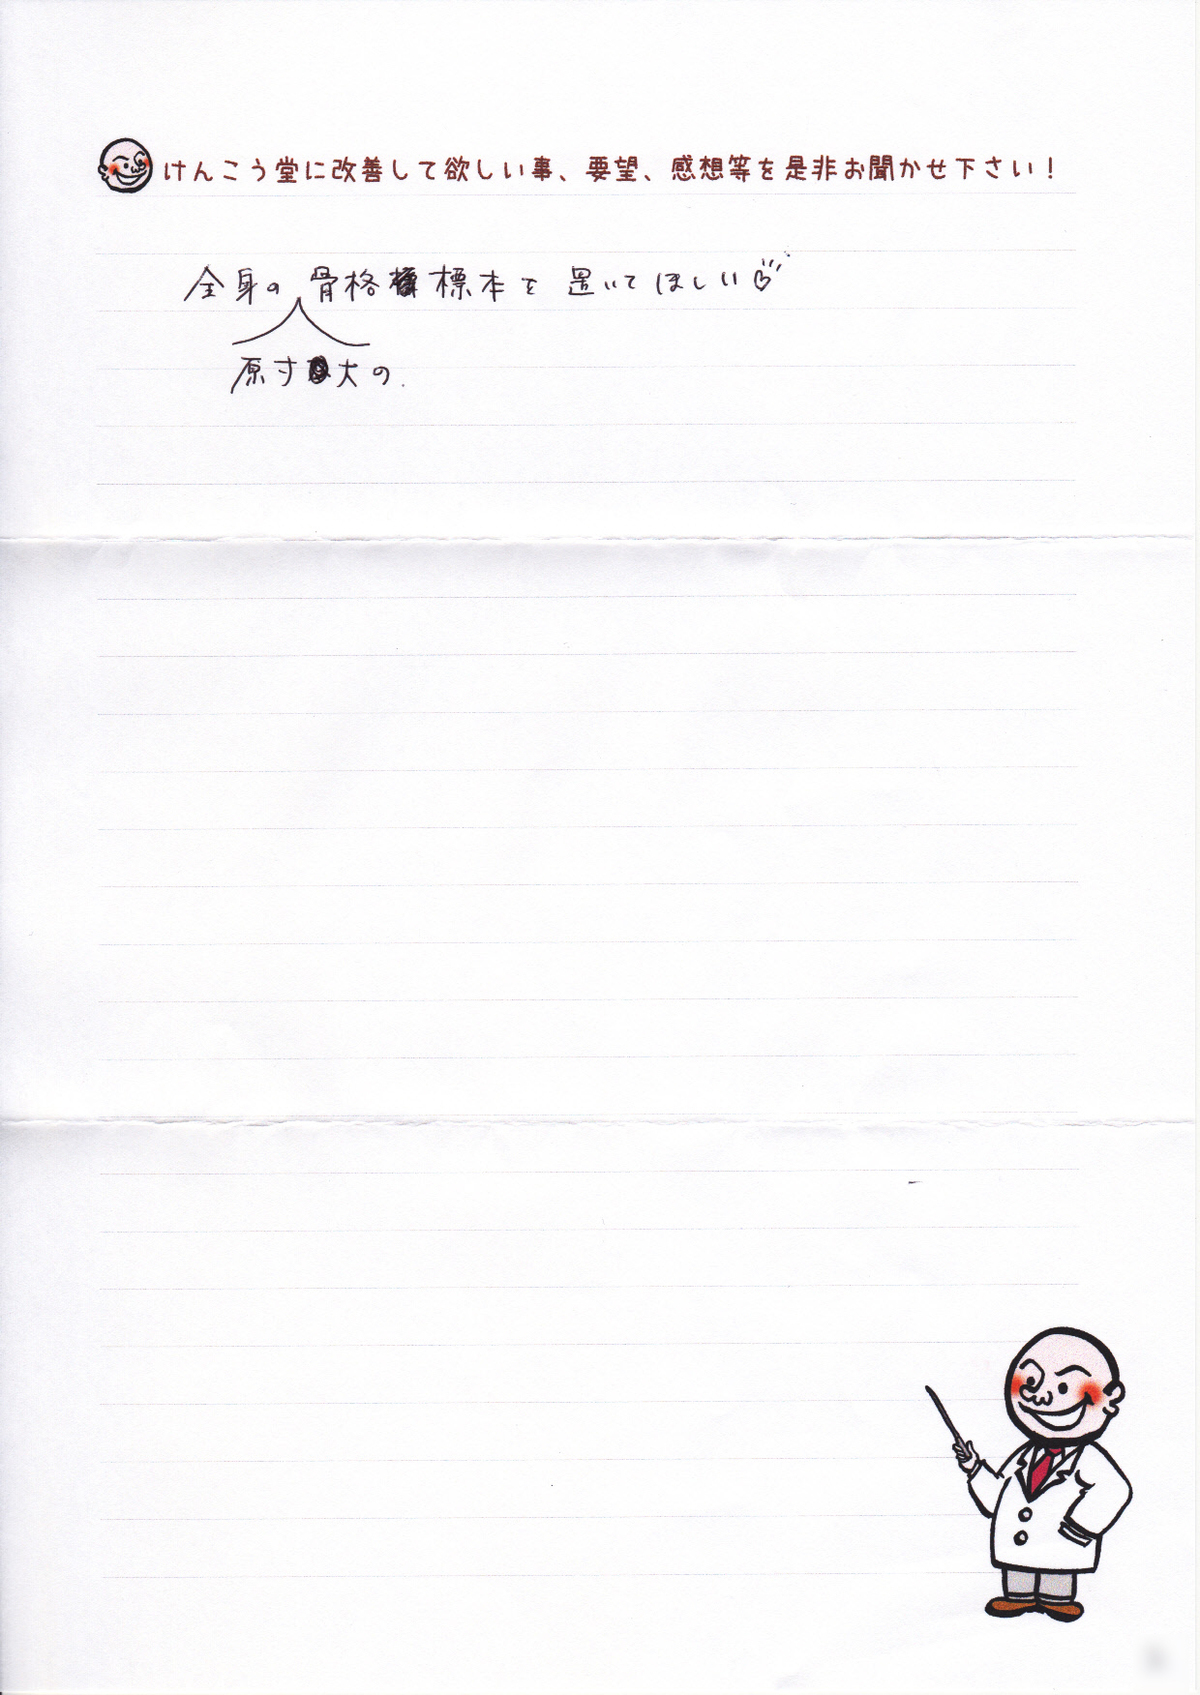 けんこう堂に改善して欲しい事、要望、感想等を是非お聞かせ下さい！
全身の骨格標本を置いてほしい♡
原寸大の.